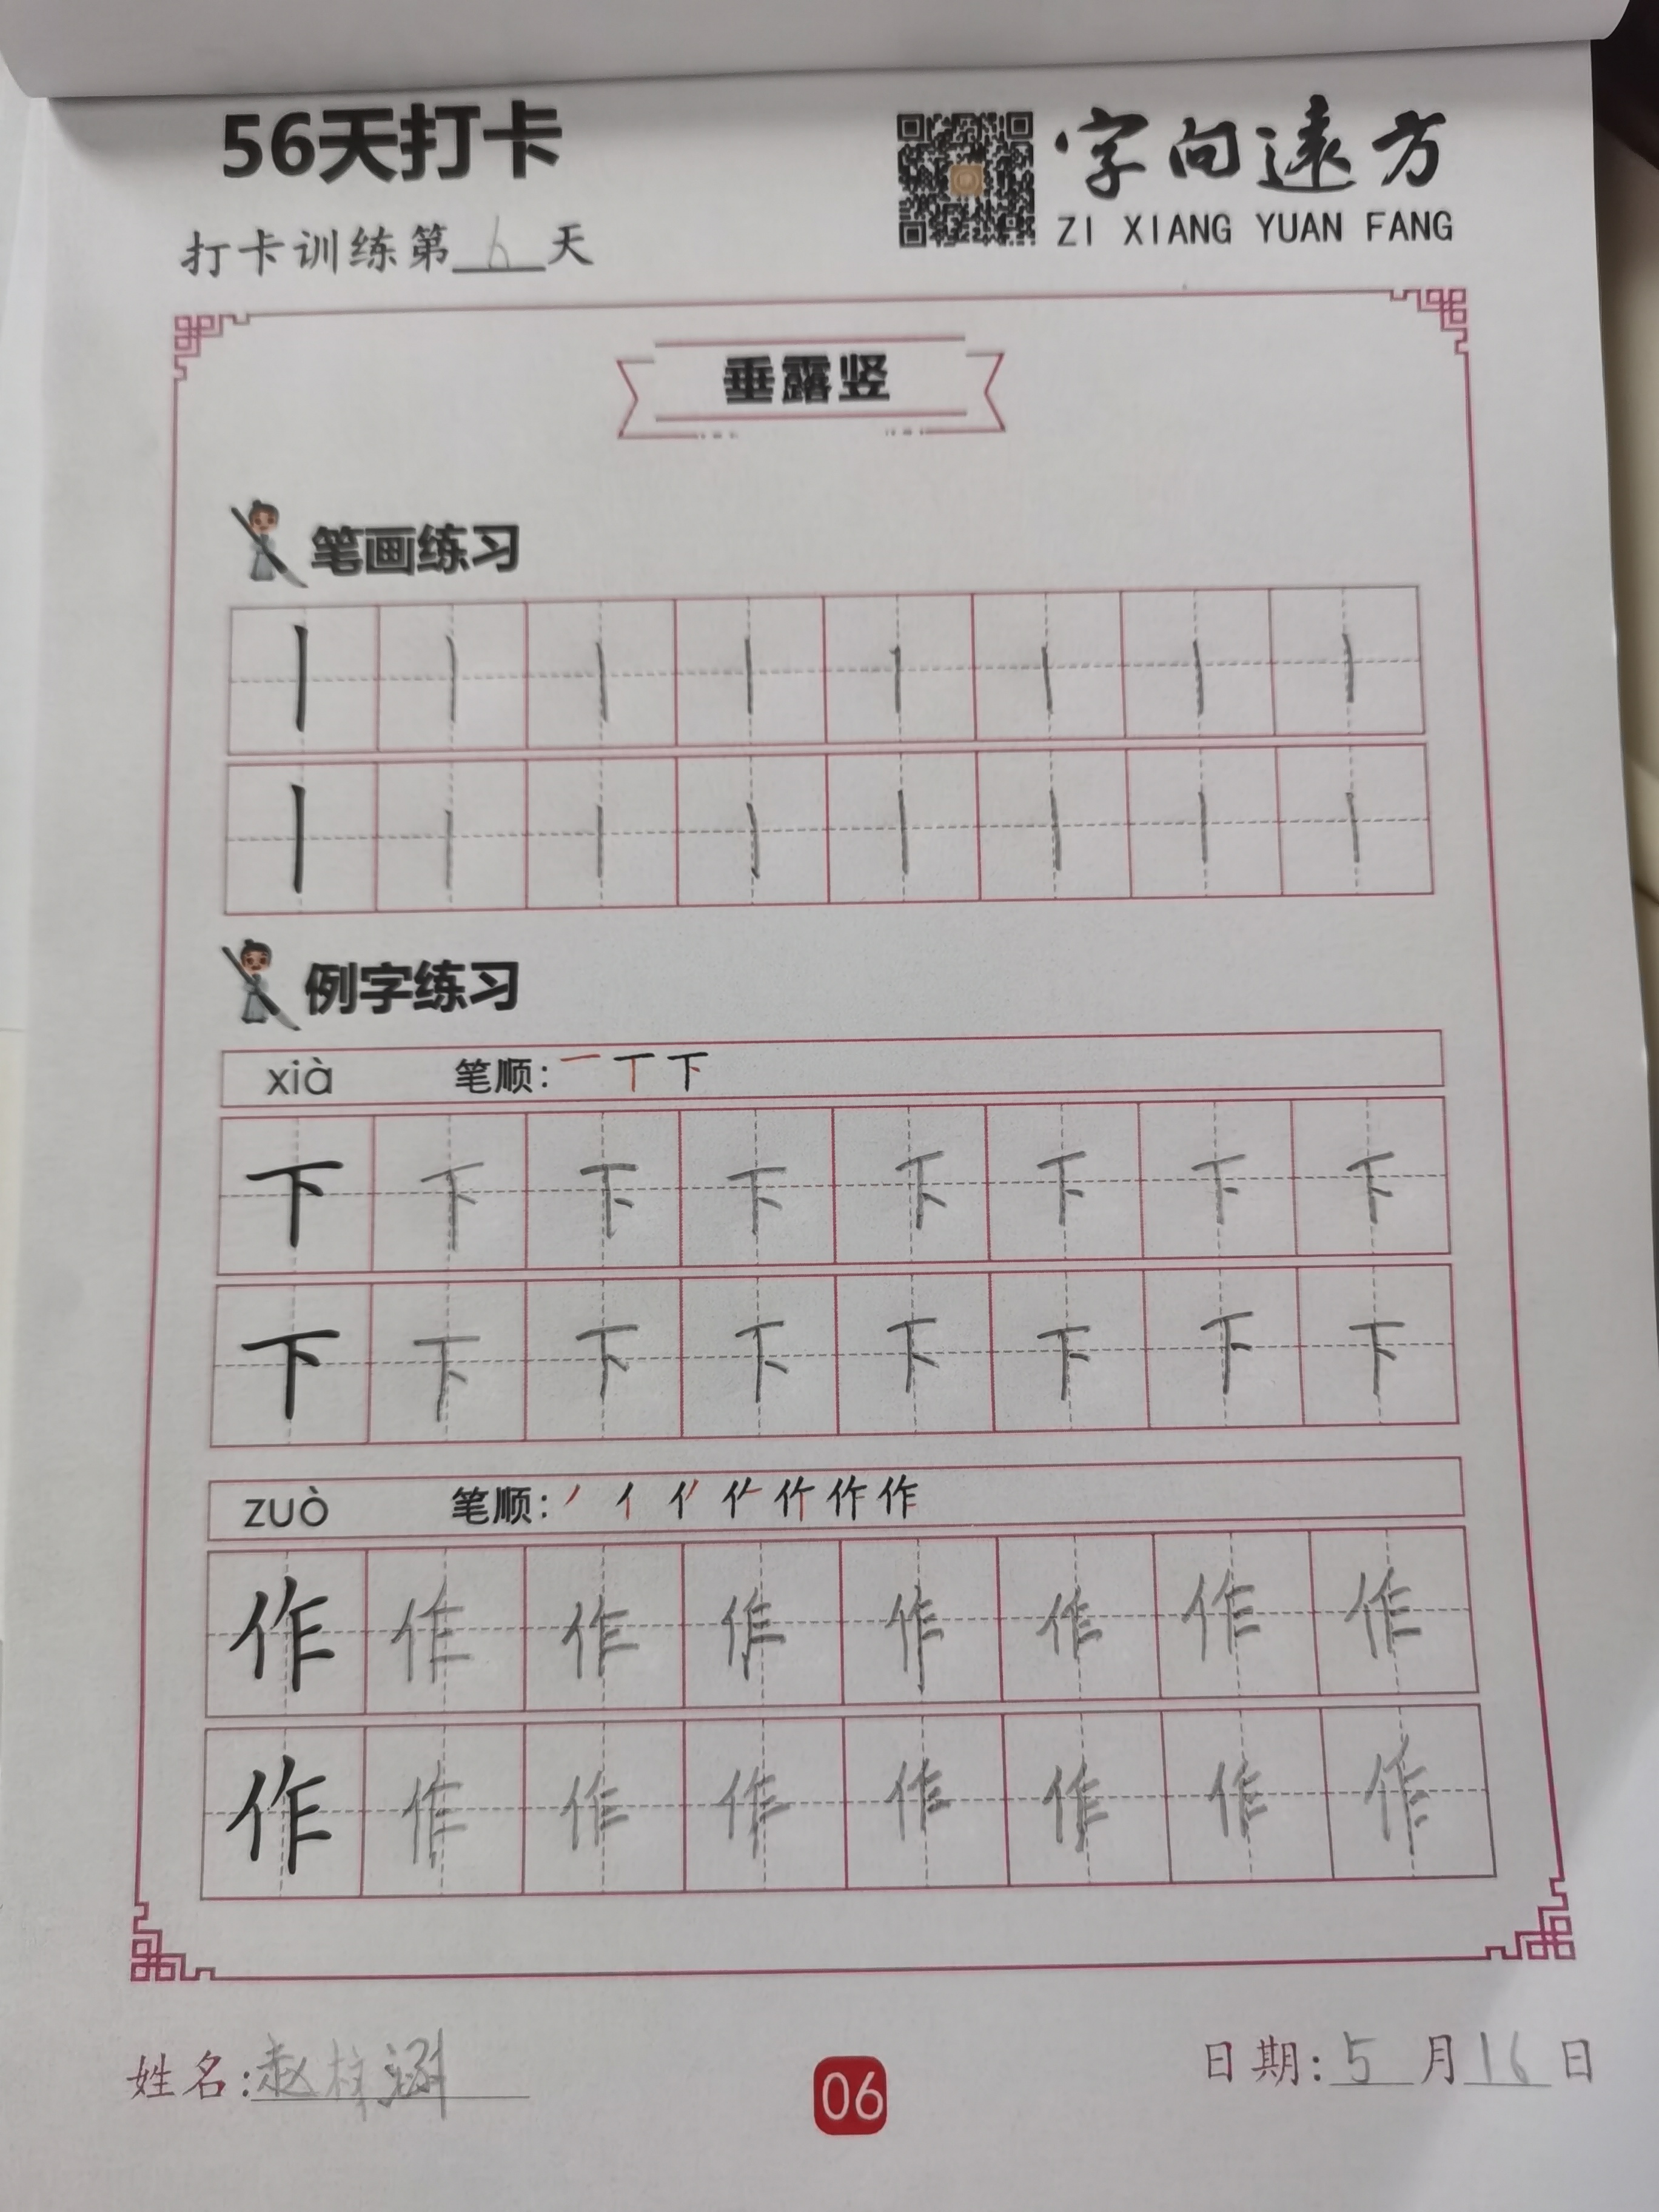 56天打卡
字向遠方
ZI XIANG YUAN FANG
打卡训练第6天
垂露竖
笔画练习
丨 丨 丨 丨 丨 丨 丨 丨
丨 丨 丨 丨 丨 丨 丨 丨
例字练习
xià 笔顺: 一 丅 下
下 下 下 下 下 下 下 下
下 下 下 下 下 下 下 下
zuò 笔顺: 作
作 作 作 作 作 作 作 作
作 作 作 作 作 作 作 作
姓名:赵 涵
06
日期:5月16日